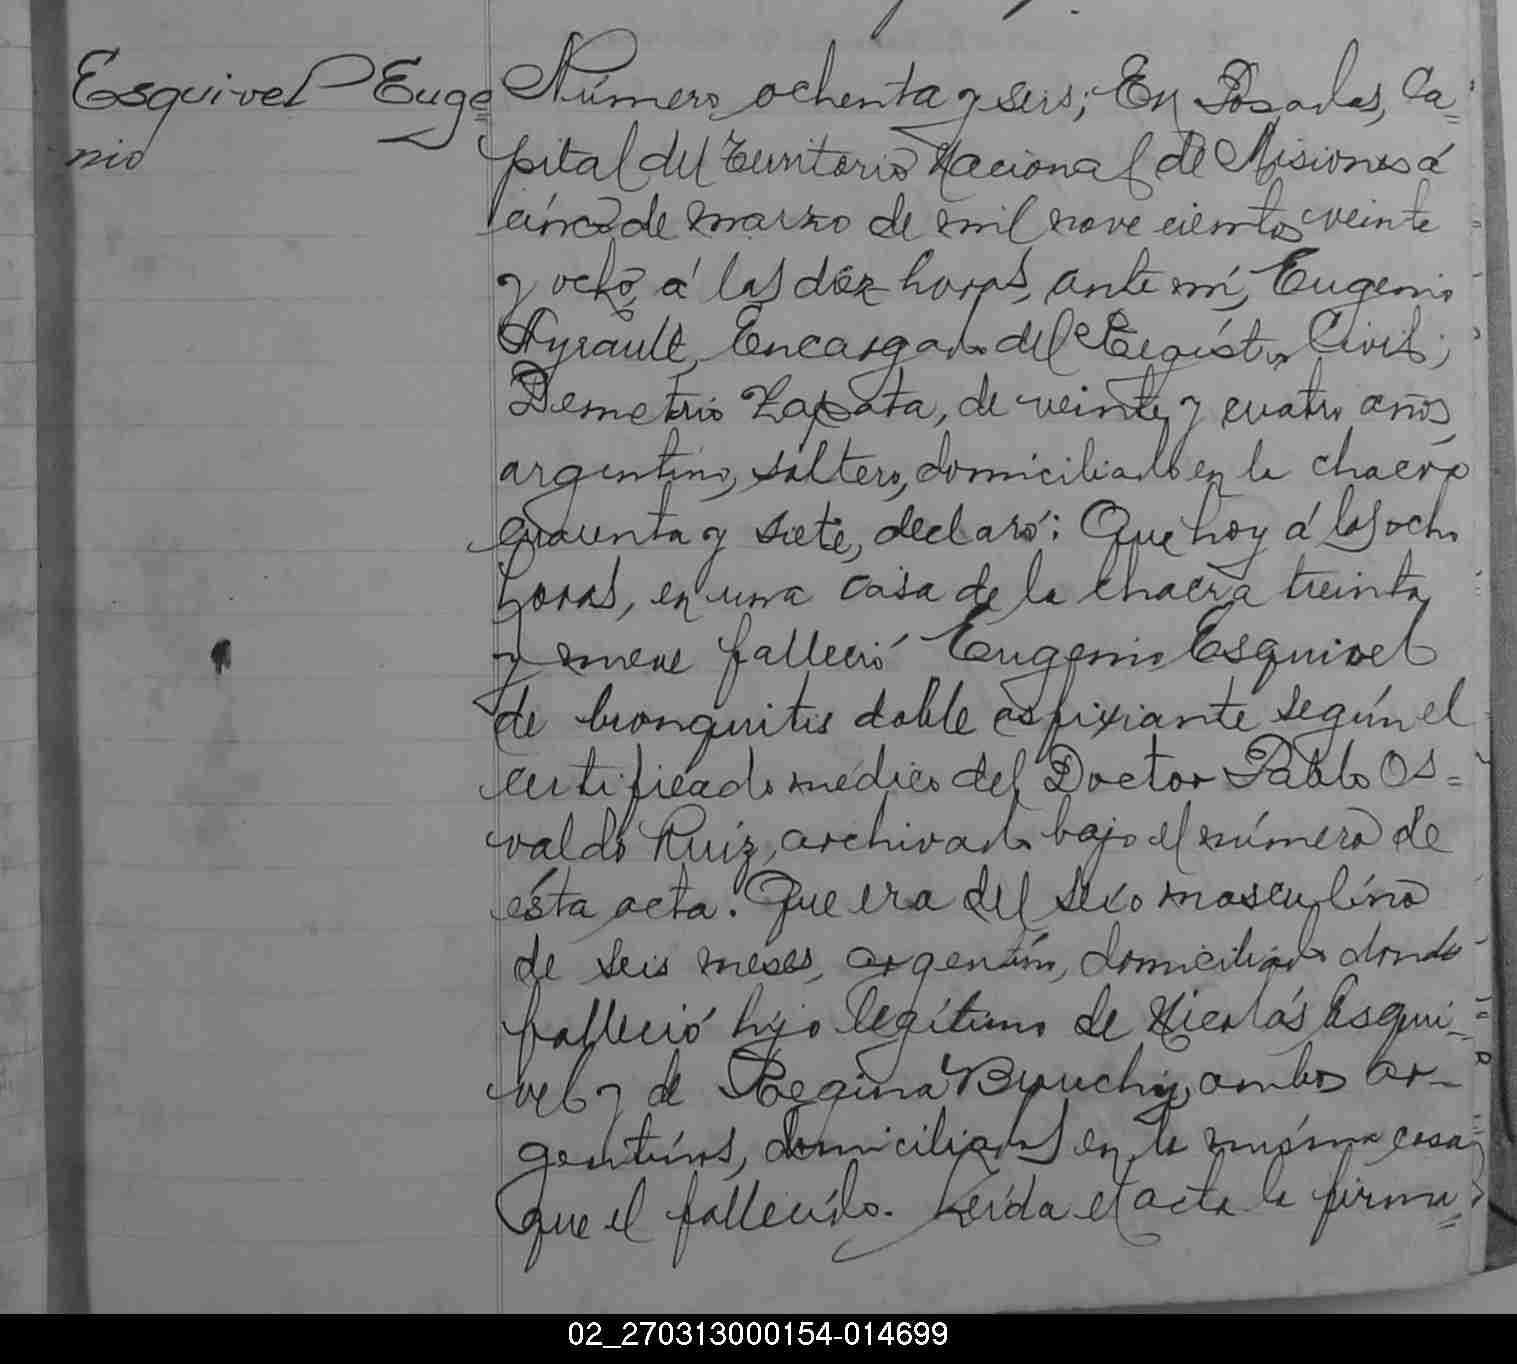 Esquivel Euge=
nio
Número ochenta y seis; En Posadas, Ca=
pital del Territorio Nacional de Misiones á
cinco de marzo de mil nove cientos veinte
y ocho, á las diez horas, ante mí, Eugenio
Ayrault, Encargado del Registro Civil;
Demetrio Zapata, de veinte y cuatro años,
argentino, soltero, domiciliado en la chacra
cuarenta y siete, declaró: Que hoy á las ocho
horas, en una casa de la chacra treinta
y nueve falleció Eugenio Esquivel
de bronquitis doble asfixiante según el
certificado médico del Doctor Pablo Os=
valdo Ruíz, archivado bajo el número de
ésta acta. Que era del sexo masculino
de seis meses, argentino, domiciliado donde
falleció hijo legítimo de Nicolás Esqui=
vel y de Regina ambos ar-
gentinos, domiciliados en la misma casa
que el fallecido. Leída el acta la firma=
02_270313000154-014699